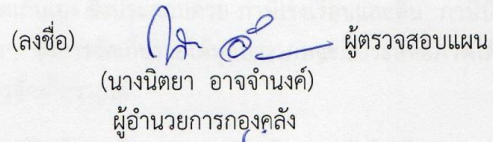 (ลงชื่อ) ผู้ตรวจสอบแผน
(นางนิตยา อาจจำนงค์)
ผู้อำนวยการกองคลัง